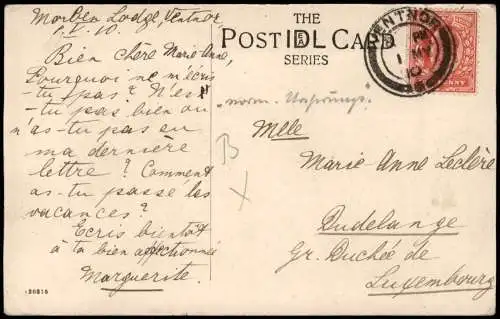 Morben Lodge, Ventnor
1.V.10.
Bien chère Marie-Anne,
Pourquoi ne m'écris
-tu pas? N'es
-tu pas bien ou
n'as-tu pas eu
ma dernière
lettre? Comment
as-tu passé les
vacances?
Ecris bientôt
à ta bien affectionnée
Marguerite.
36815
THE
POST IDL CARD
SERIES
VENTNOR
PM
1 MY
10
"norm. Ursprungs"
B
X
Mlle
Marie-Anne Leclère
Dudelange
Gr. Duchée de
Luxembourg